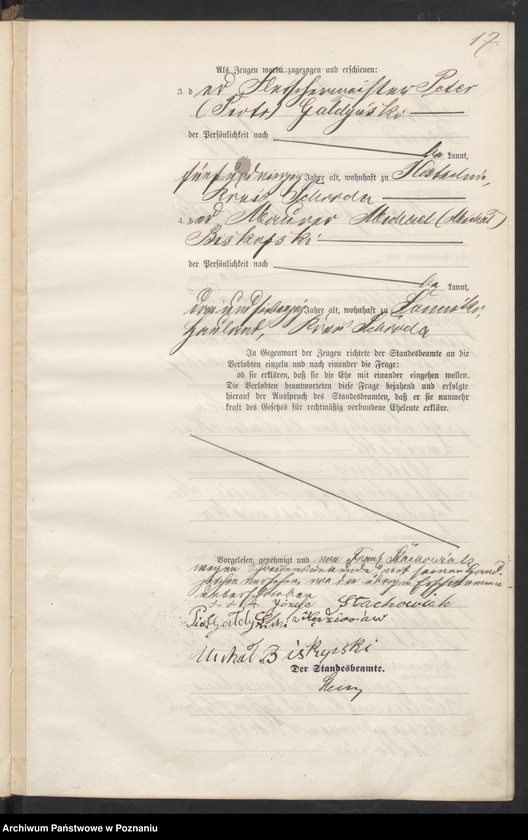 17.
Als Zeugen waren zugezogen und erschienen:
3. der Fleischermeister Peter
(Piotr) Gałdyński
der Persönlichkeit nach
be kannt,
Jahre alt, wohnhaft zu
Kreis Schroda
4. der Maurer Michael (Michał)
Biskupski
der Persönlichkeit nach
be kannt,
drei und siebenzig Jahre alt, wohnhaft zu
Hauland, Kreis Schroda
In Gegenwart der Zeugen richtete der Standesbeamte an die
Verlobten einzeln und nach einander die Frage:
ob sie erklären, daß sie die Ehe mit einander eingehen wollen.
Die Verlobten beantworteten diese Frage bejahend und erfolgte
hierauf der Ausspruch des Standesbeamten, daß er sie nunmehr
kraft des Gesetzes für rechtmäßig verbundene Eheleute erkläre.
Vorgelesen, genehmigt und von Franz Stachowiak
wegen Schreibensunkunde mit seinem Hand-
zeichen versehen, von den übrigen Erschienenen
unterschrieben
+++ Józefa Stachowiak
Piotr Gałdyński
Michał Biskupski
Der Standesbeamte.
Archiwum Państwowe w Poznaniu